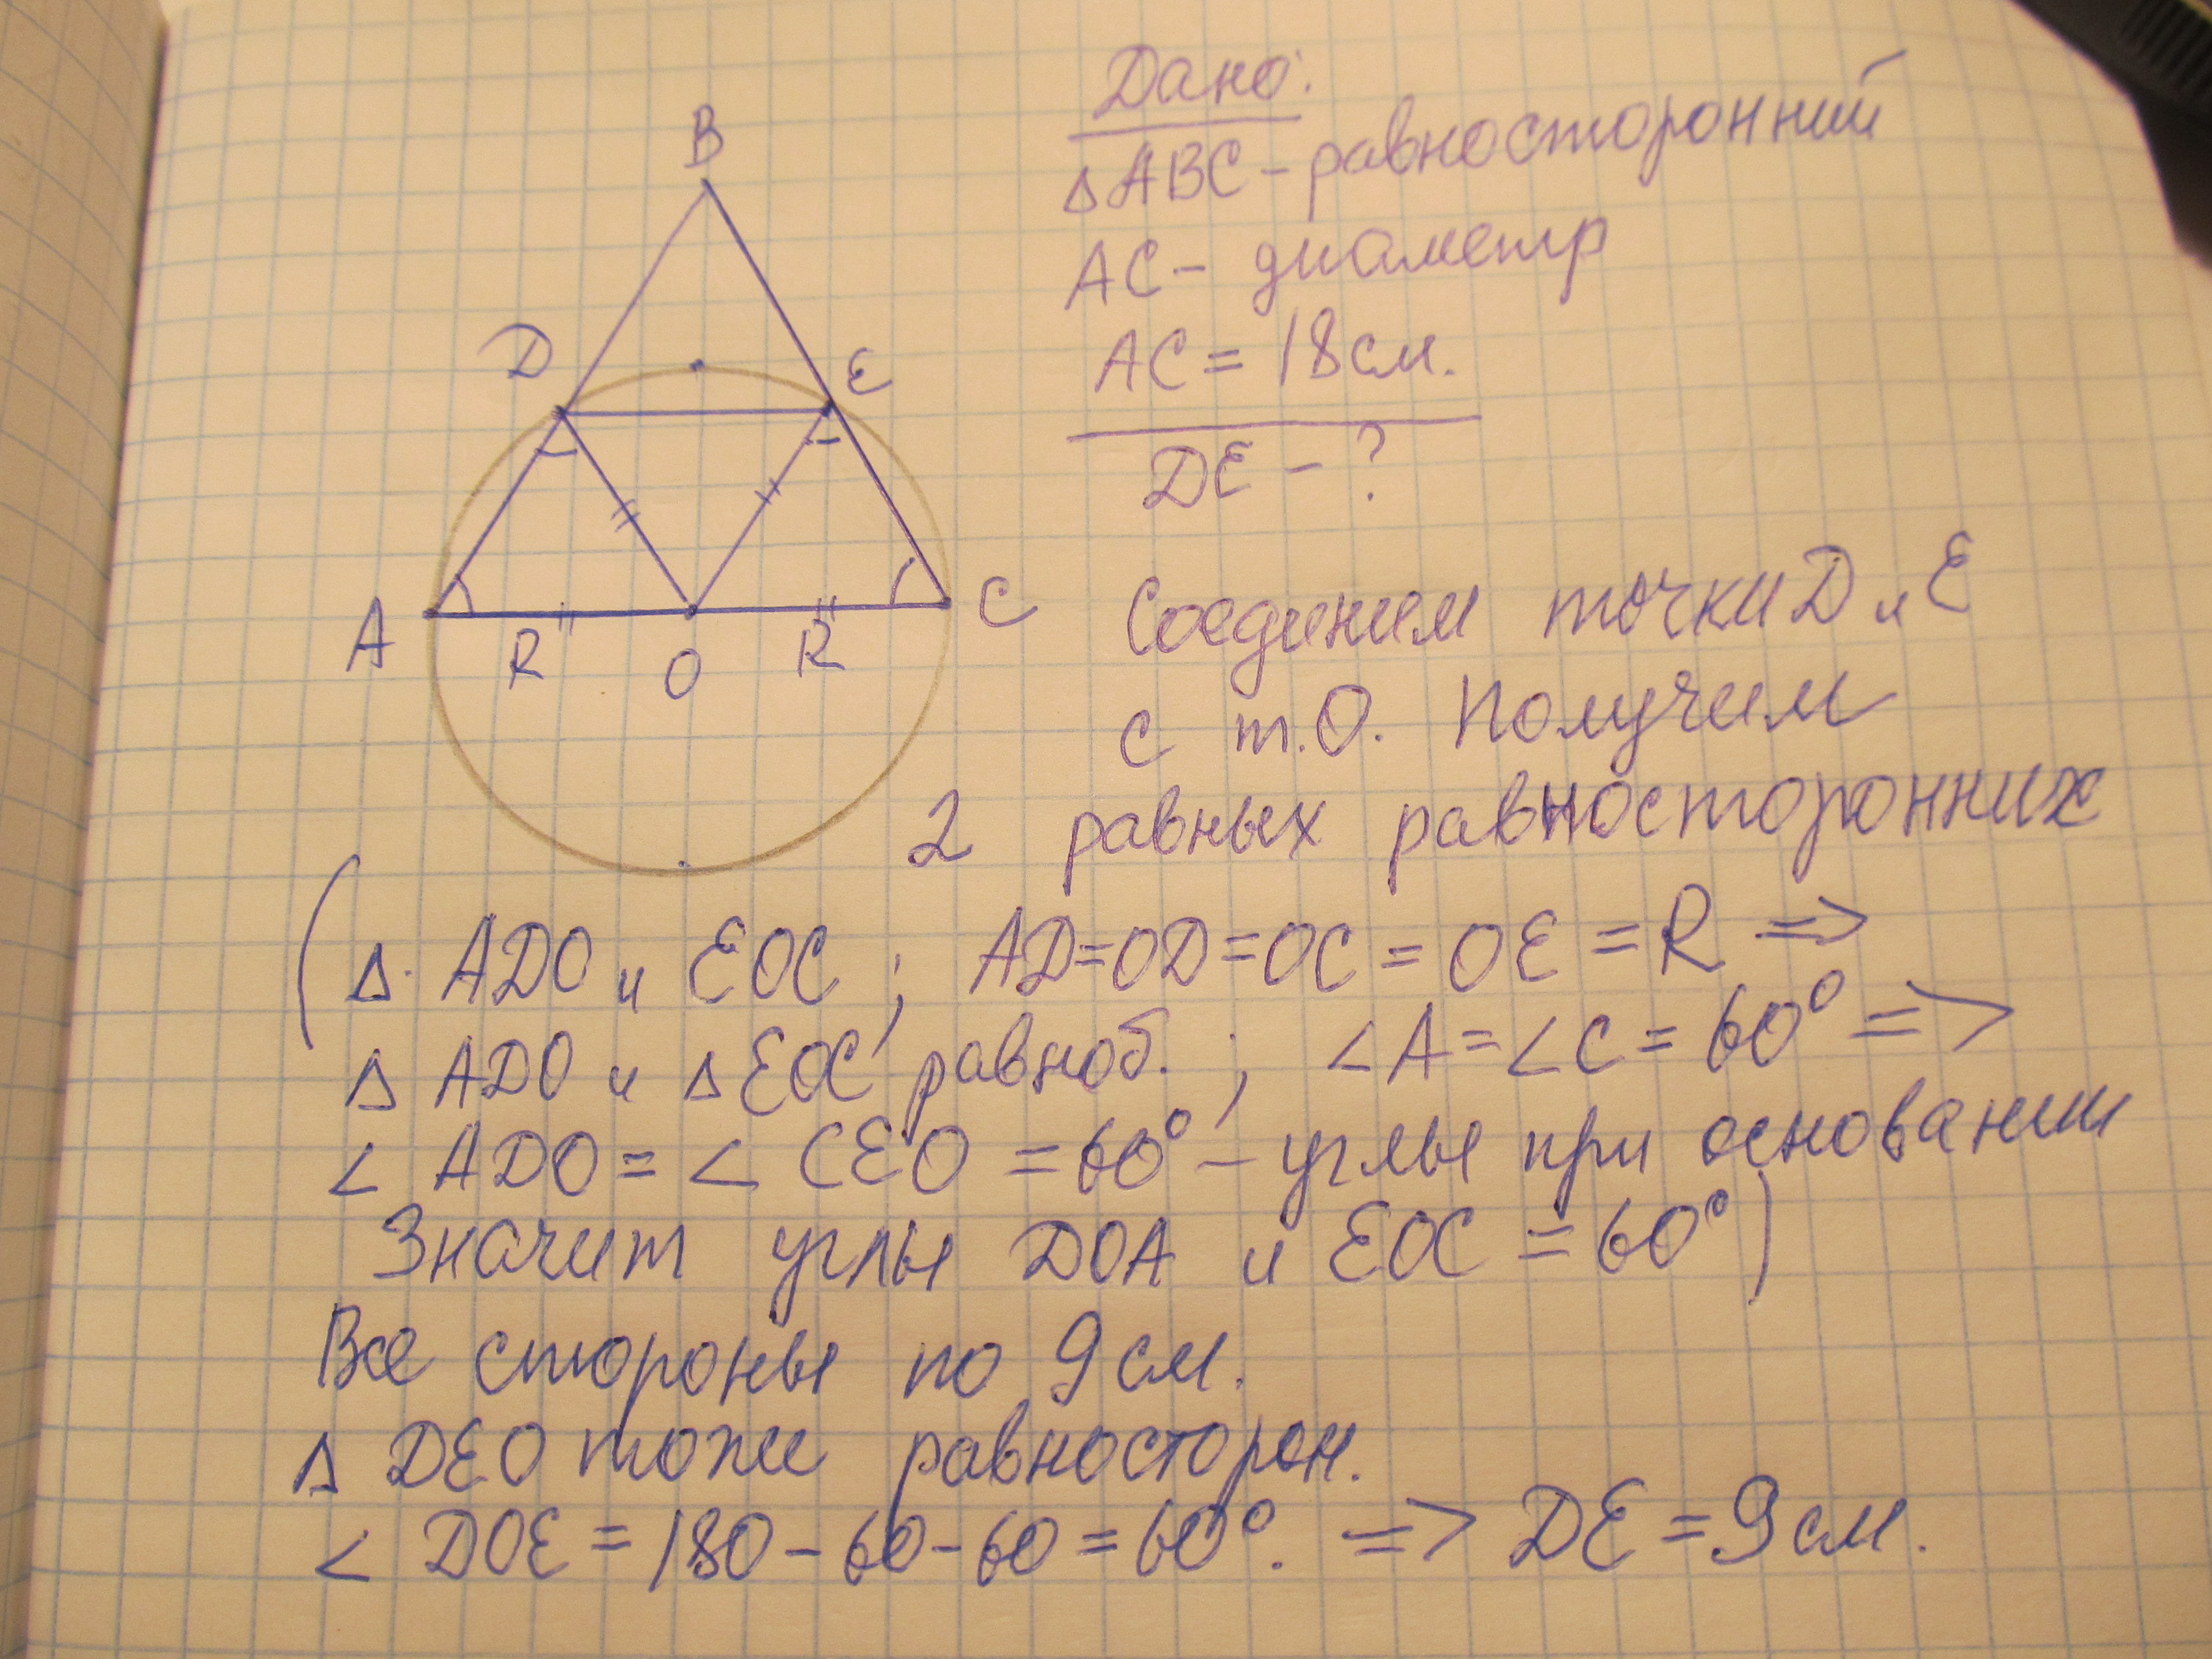 B
D
E
A
R
O
R
C
Дано:
△ABC - равносторонний
AC - диаметр
AC = 18см.
DE - ?
Соединим точки D и E
с т.O. Получим
2 равных равносторонних
(△ ADO и EOC; AD=OD=OC=OE=R =>
△ ADO и △EOC равноб.; ∠A=∠C=60° =>
∠ ADO = ∠ CEO = 60° - углы при основании
Значит углы DOA и EOC = 60°)
Все стороны по 9см.
△ DEO тоже равносторон.
∠ DOE = 180-60-60=60°. => DE=9см.